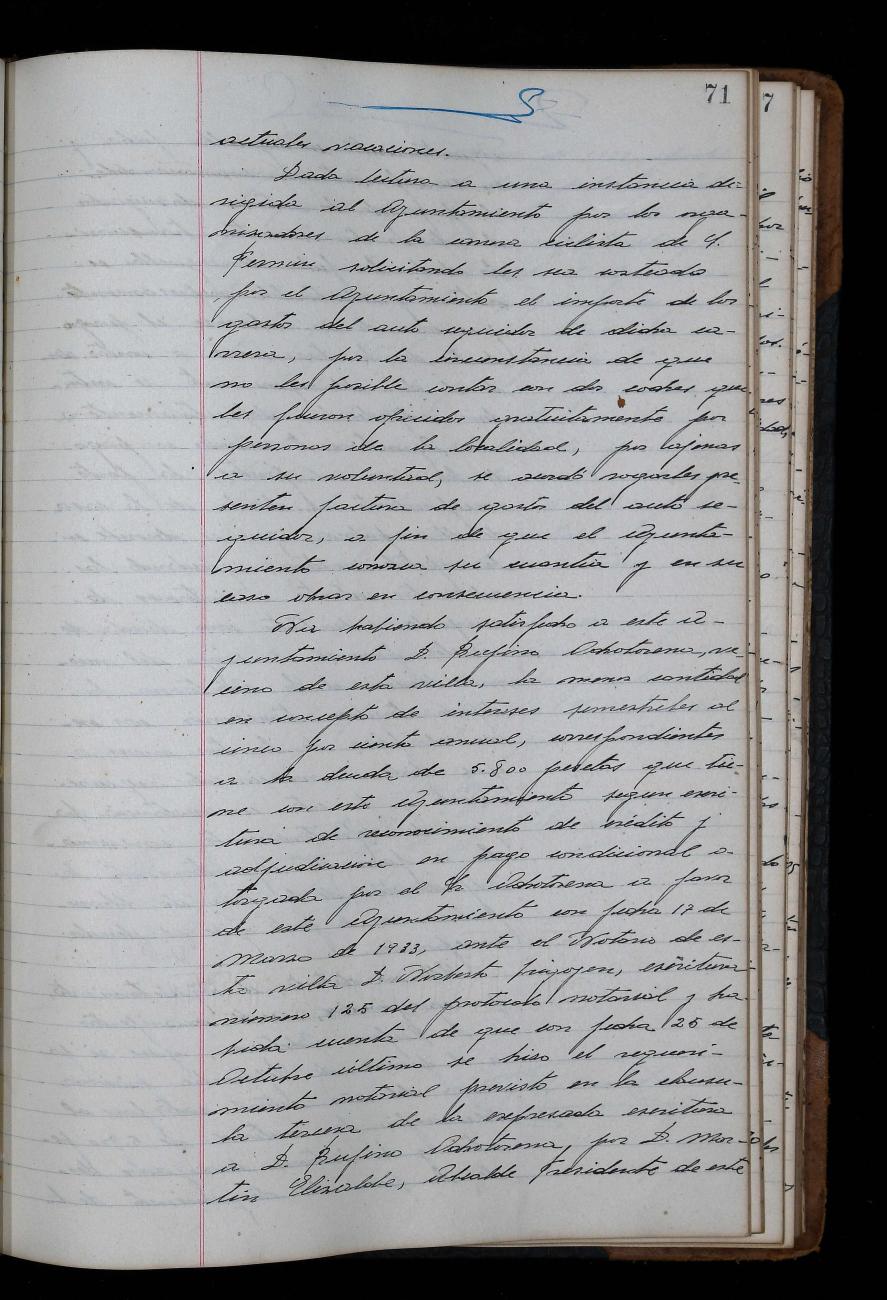 71
actuales vacaciones.
Dada lectura a una instancia di-
rigida al Ayuntamiento por los orga-
nisadores de la carrera ciclista de S.
Fermin solicitando les sea costeado
por el Ayuntamiento el importe de los
gastos del auto seguidor de dicha ca-
rrera, por la circunstancia de que
no les posible contar con dos coches que
les fueron ofrecidos gratuitamente por
personas de la localidad, por ajenas
a su voluntad, se acordó rogarles pre-
senten factura de gastos del auto se-
guidor, a fin de que el Ayunta-
miento conozca su cuantia y en su
caso obrar en consecuencia.
No habiendo satisfecho a este A-
yuntamiento D. Rufino Ochotorena, ve-
cino de esta villa, la menor cantidad
en concepto de intereses semestrales al
cinco por ciento anual, correspondientes
a la deuda de 5.800 pesetas que tie-
ne con este Ayuntamiento segun escri-
tura de reconocimiento de crédito y
adjudicacion en pago condicional o-
torgada por el Sr Ochotorena a favor
de este Ayuntamiento con fecha 17 de
Marzo de 1933, ante el Notario de es-
ta villa D. Norberto, escritura
número 125 del protocolo notarial y ha-
bida cuenta de que con fecha 25 de
Octubre último se hizo el requeri-
miento notarial previsto en la clausu-
la tercera de la expresada escritura
a D. Rufino Ochotorena, por D. Mar-
tin Elizalde, Alcalde Presidente de este